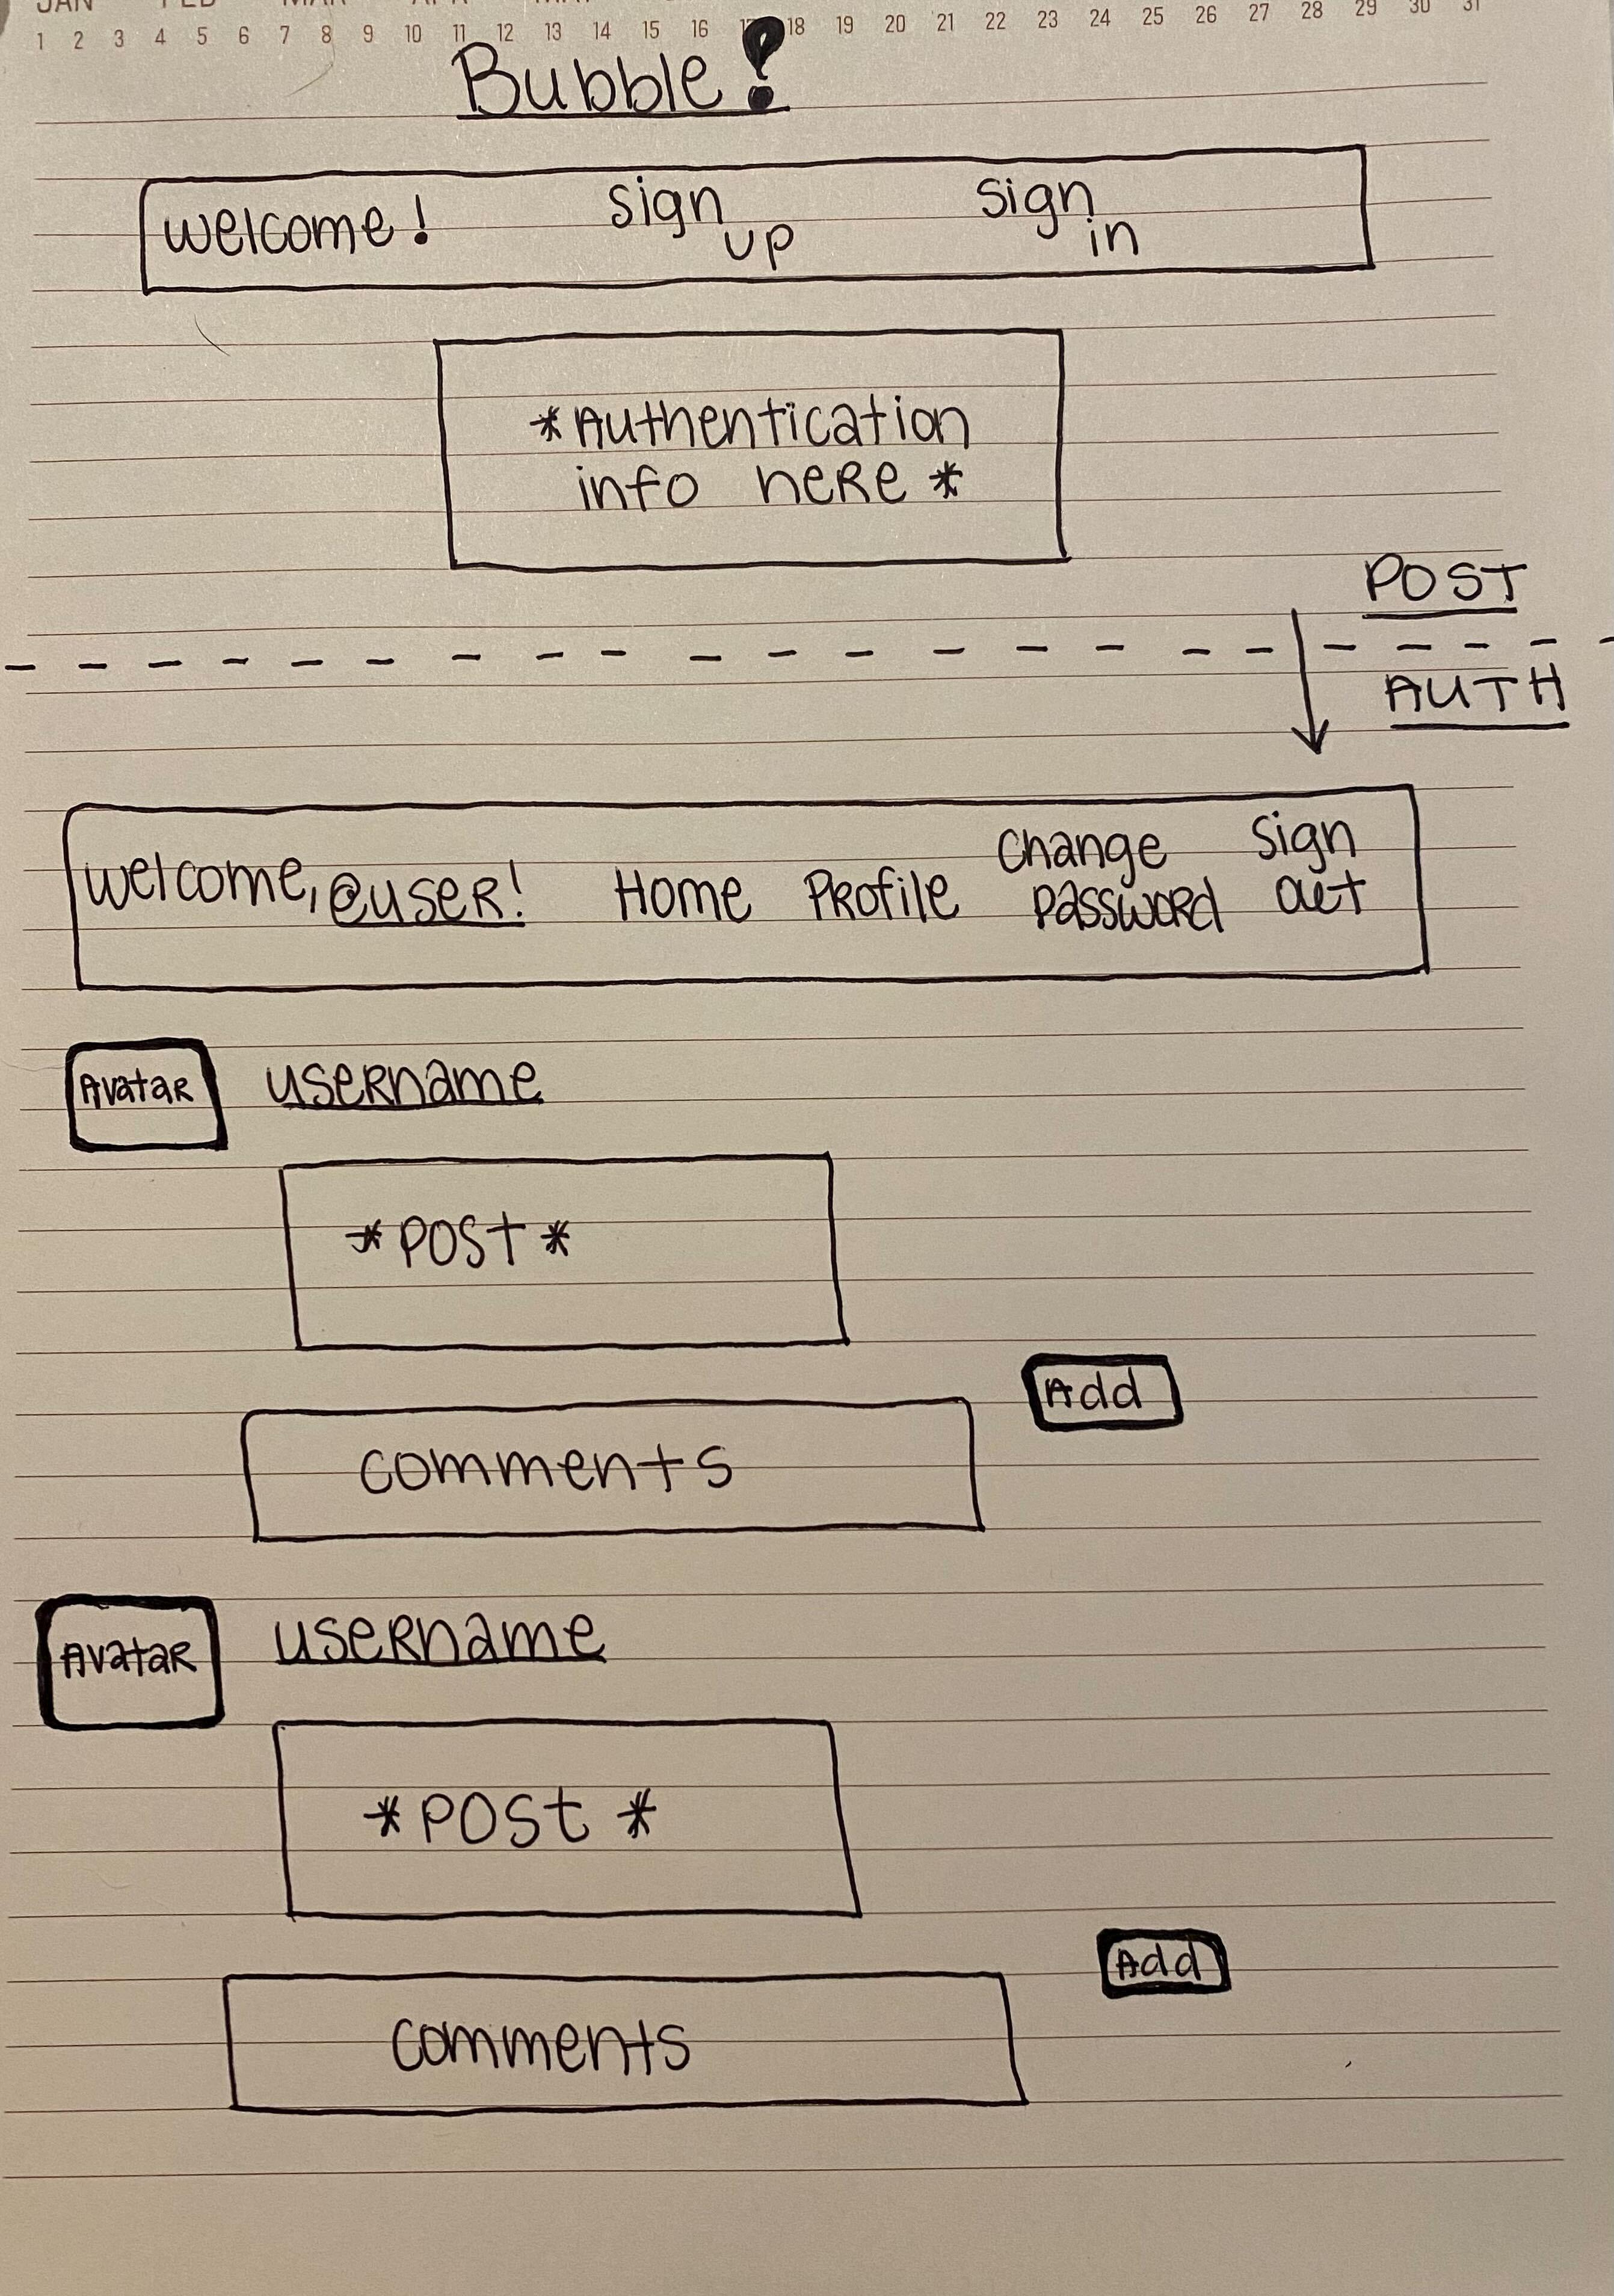 JAN FEB MAR APR MAY
1 2 3 4 5 6 7 8 9 10 11 12 13 14 15 16 17 18 19 20 21 22 23 24 25 26 27 28 29 30 31
Bubble!
welcome! sign up sign in
*Authentication
info here*
POST
AUTH
welcome, @user! Home Profile Change password Sign out
Avatar username
*POST*
Add
comments
Avatar username
*POSt*
Add
comments